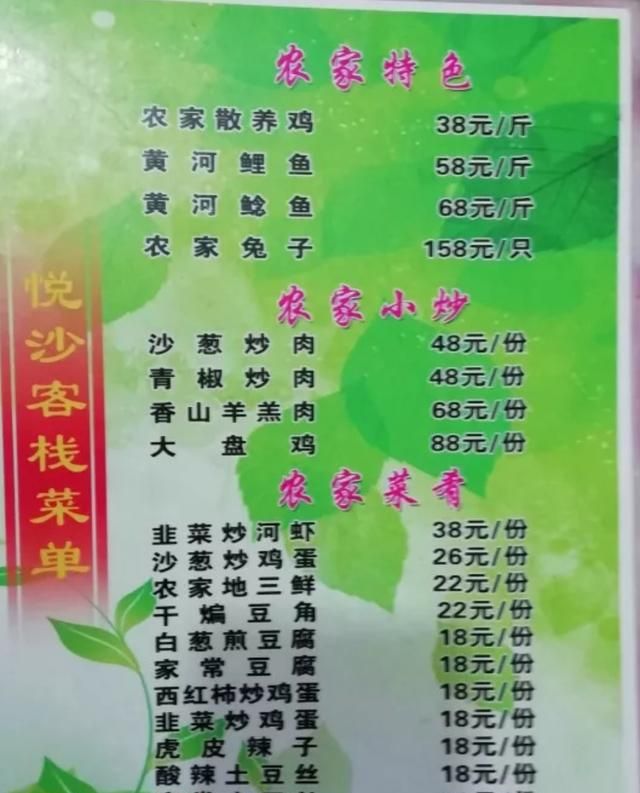 悦沙客栈菜单
农家特色
农家散养鸡 38元/斤
黄河鲤鱼 58元/斤
黄河鲶鱼 68元/斤
农家兔子 158元/只
农家小炒
沙葱炒肉 48元/份
青椒炒肉 48元/份
香山羊羔肉 68元/份
大盘鸡 88元/份
农家菜肴
韭菜炒河虾 38元/份
沙葱炒鸡蛋 26元/份
农家地三鲜 22元/份
干煸豆角 22元/份
白葱煎豆腐 18元/份
家常豆腐 18元/份
西红柿炒鸡蛋 18元/份
韭菜炒鸡蛋 18元/份
虎皮辣子 18元/份
酸辣土豆丝 18元/份